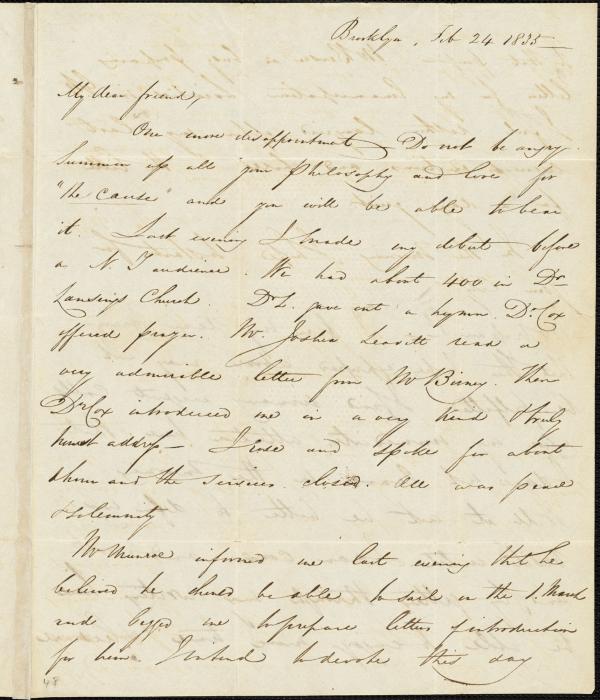 Brooklyn, Feb 24 1835
My dear friend,
One more disappointment — Do not be angry.
Summon up all your Philosophy and love for
"the cause" and you will be able to bear
it. Last evening I made my debut before
a N. Y audience. We had about 400 in Dr
Lansing's Church. Dr L. gave out a hymn. Dr Cox
offered prayer. Mr Joshua Leavitt read a
very admirable letter from Mr Birney. Then
Dr Cox introduced me in a very kind & truly
honest address — I rose and spoke for about
and the services closed. All was peace
& solemnity
Mr Munroe informed me last evening that he
believed he should be able to sail on the 1. March
and begged me to prepare letters of introduction
for him. I intend to devote this day
48